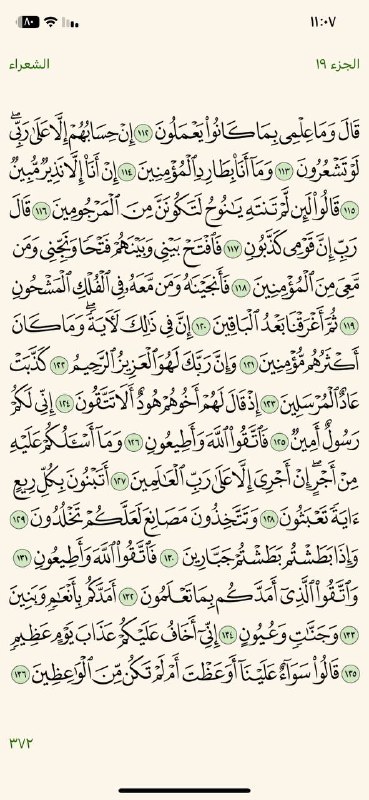 ١١:٠٧
٨٠
الجزء ١٩
الشعراء
قَالَ وَمَا عِلْمِى بِمَا كَانُوا۟ يَعْمَلُونَ ١١٢ إِنْ حِسَابُهُمْ إِلَّا عَلَىٰ رَبِّىۖ
لَوْ تَشْعُرُونَ ١١٣ وَمَآ أَنَا۠ بِطَارِدِ ٱلْمُؤْمِنِينَ ١١٤ إِنْ أَنَا۠ إِلَّا نَذِيرٌ مُّبِينٌ
١١٥ قَالُوا۟ لَئِن لَّمْ تَنتَهِ يَـٰنُوحُ لَتَكُونَنَّ مِنَ ٱلْمَرْجُومِينَ ١١٦ قَالَ
رَبِّ إِنَّ قَوْمِى كَذَّبُونِ ١١٧ فَٱفْتَحْ بَيْنِى وَبَيْنَهُمْ فَتْحًا وَنَجِّنِى وَمَن
مَّعِىَ مِنَ ٱلْمُؤْمِنِينَ ١١٨ فَأَنجَيْنَـٰهُ وَمَن مَّعَهُۥ فِى ٱلْفُلْكِ ٱلْمَشْحُونِ
١١٩ ثُمَّ أَغْرَقْنَا بَعْدُ ٱلْبَاقِينَ ١٢٠ إِنَّ فِى ذَٰلِكَ لَـَٔايَةًۖ وَمَا كَانَ
أَكْثَرُهُم مُّؤْمِنِينَ ١٢١ وَإِنَّ رَبَّكَ لَهُوَ ٱلْعَزِيزُ ٱلرَّحِيمُ ١٢٢ كَذَّبَتْ
عَادٌ ٱلْمُرْسَلِينَ ١٢٣ إِذْ قَالَ لَهُمْ أَخُوهُمْ هُودٌ أَلَا تَتَّقُونَ ١٢٤ إِنِّى لَكُمْ
رَسُولٌ أَمِينٌ ١٢٥ فَٱتَّقُوا۟ ٱللَّهَ وَأَطِيعُونِ ١٢٦ وَمَآ أَسْـَٔلُكُمْ عَلَيْهِ
مِنْ أَجْرٍۖ إِنْ أَجْرِىَ إِلَّا عَلَىٰ رَبِّ ٱلْعَـٰلَمِينَ ١٢٧ أَتَبْنُونَ بِكُلِّ رِيعٍ
ءَايَةً تَعْبَثُونَ ١٢٨ وَتَتَّخِذُونَ مَصَانِعَ لَعَلَّكُمْ تَخْلُدُونَ ١٢٩
وَإِذَا بَطَشْتُم بَطَشْتُمْ جَبَّارِينَ ١٣٠ فَٱتَّقُوا۟ ٱللَّهَ وَأَطِيعُونِ ١٣١
وَٱتَّقُوا۟ ٱلَّذِىٓ أَمَدَّكُم بِمَا تَعْلَمُونَ ١٣٢ أَمَدَّكُم بِأَنْعَـٰمٍ وَبَنِينَ
١٣٣ وَجَنَّـٰتٍ وَعُيُونٍ ١٣٤ إِنِّىٓ أَخَافُ عَلَيْكُمْ عَذَابَ يَوْمٍ عَظِيمٍ
١٣٥ قَالُوا۟ سَوَآءٌ عَلَيْنَآ أَوَعَظْتَ أَمْ لَمْ تَكُن مِّنَ ٱلْوَٰعِظِينَ ١٣٦
٣٧٢